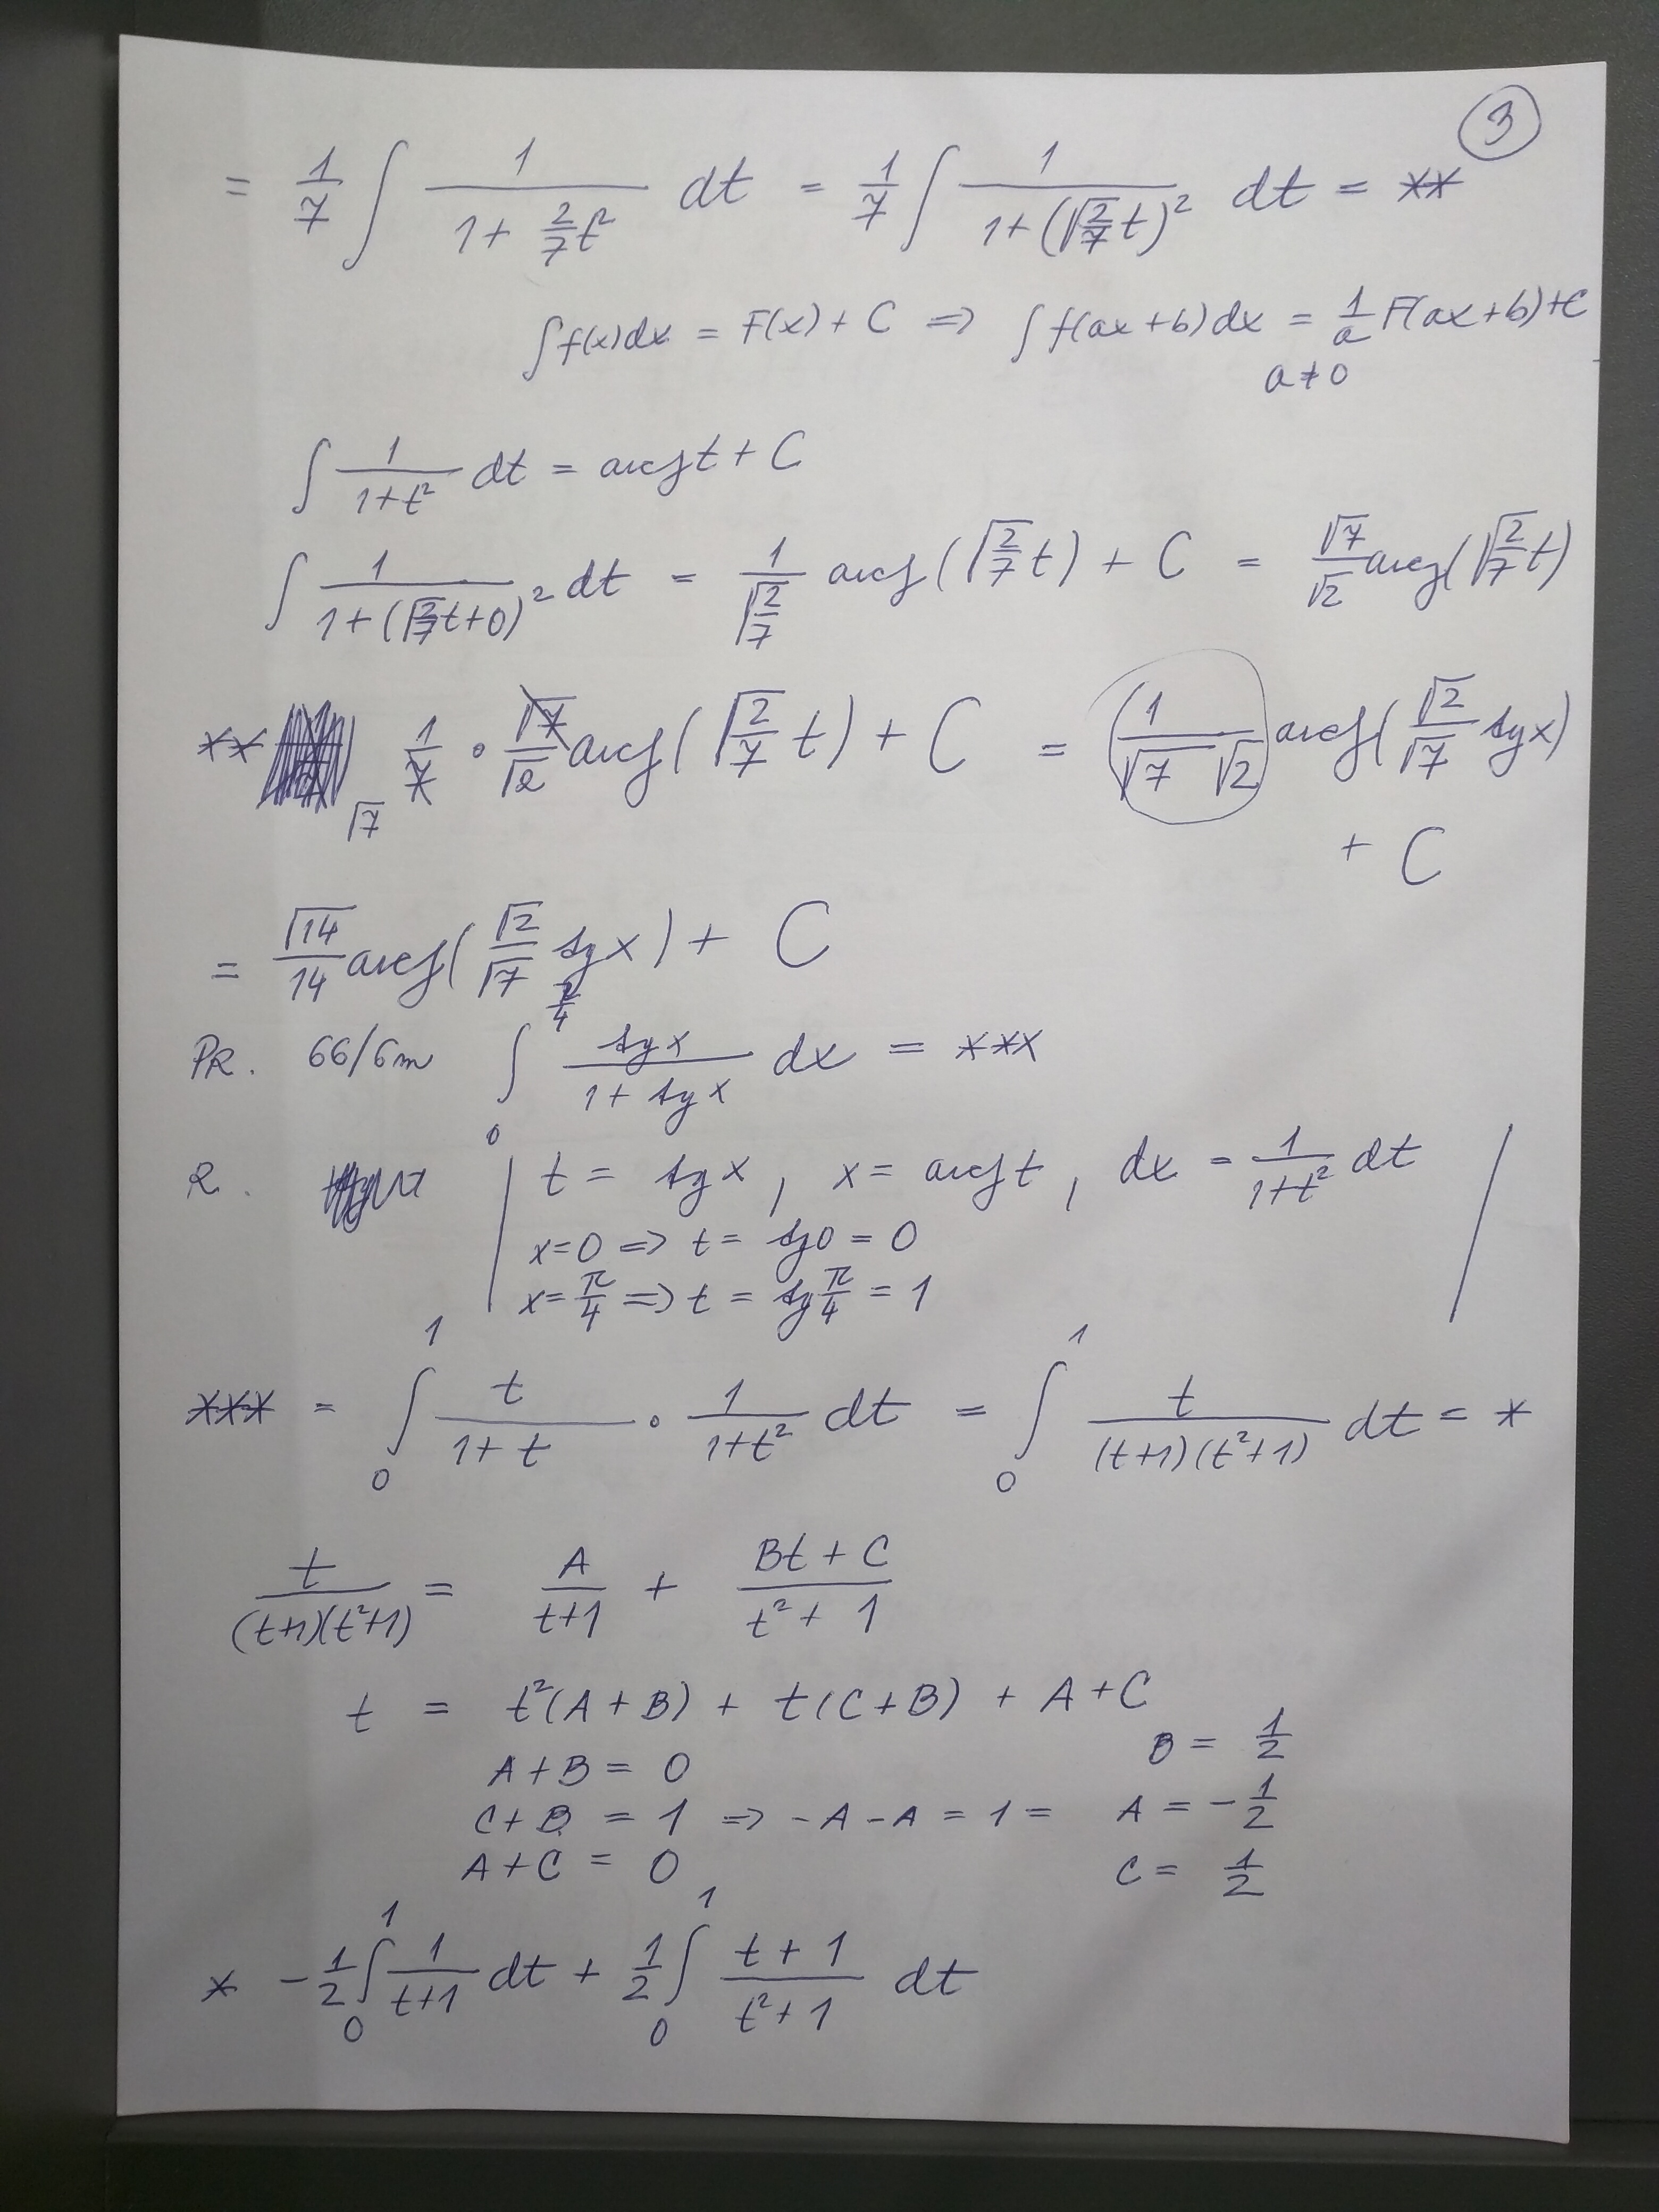 3
= 1/7 ∫ 1/(1+ 2/7 t²) dt = 1/7 ∫ 1/(1+(√(2/7) t)²) dt = **
∫f(x)dx = F(x) + C => ∫f(ax+b)dx = 1/a F(ax+b)+C
a≠0
∫ 1/(1+t²) dt = arctg t + C
∫ 1/(1+(√(2/7) t+0)²) dt = 1/√(2/7) arctg(√(2/7) t) + C = √7/√2 arctg(√(2/7) t)
** 1/7 · √7/√2 arctg(√(2/7) t) + C = 1/(√7 √2) arctg(√2/√7 tgx)
√7
+ C
= √14/14 arctg(√2/√7 tgx) + C
PR. 66/6m ∫₀^(π/4) tgx/(1+tgx) dx = ***
R. | t = tgx, x = arctg t, dx = 1/(1+t²) dt |
x=0 => t = tg0 = 0
x=π/4 => t = tg π/4 = 1
*** = ∫₀¹ t/(1+t) · 1/(1+t²) dt = ∫₀¹ t/((t+1)(t²+1)) dt = *
t/((t+1)(t²+1)) = A/(t+1) + (Bt+C)/(t²+1)
t = t²(A+B) + t(C+B) + A+C
A+B = 0 B = 1/2
C+B = 1 => -A-A = 1 = A = -1/2
A+C = 0 C = 1/2
* -1/2 ∫₀¹ 1/(t+1) dt + 1/2 ∫₀¹ (t+1)/(t²+1) dt